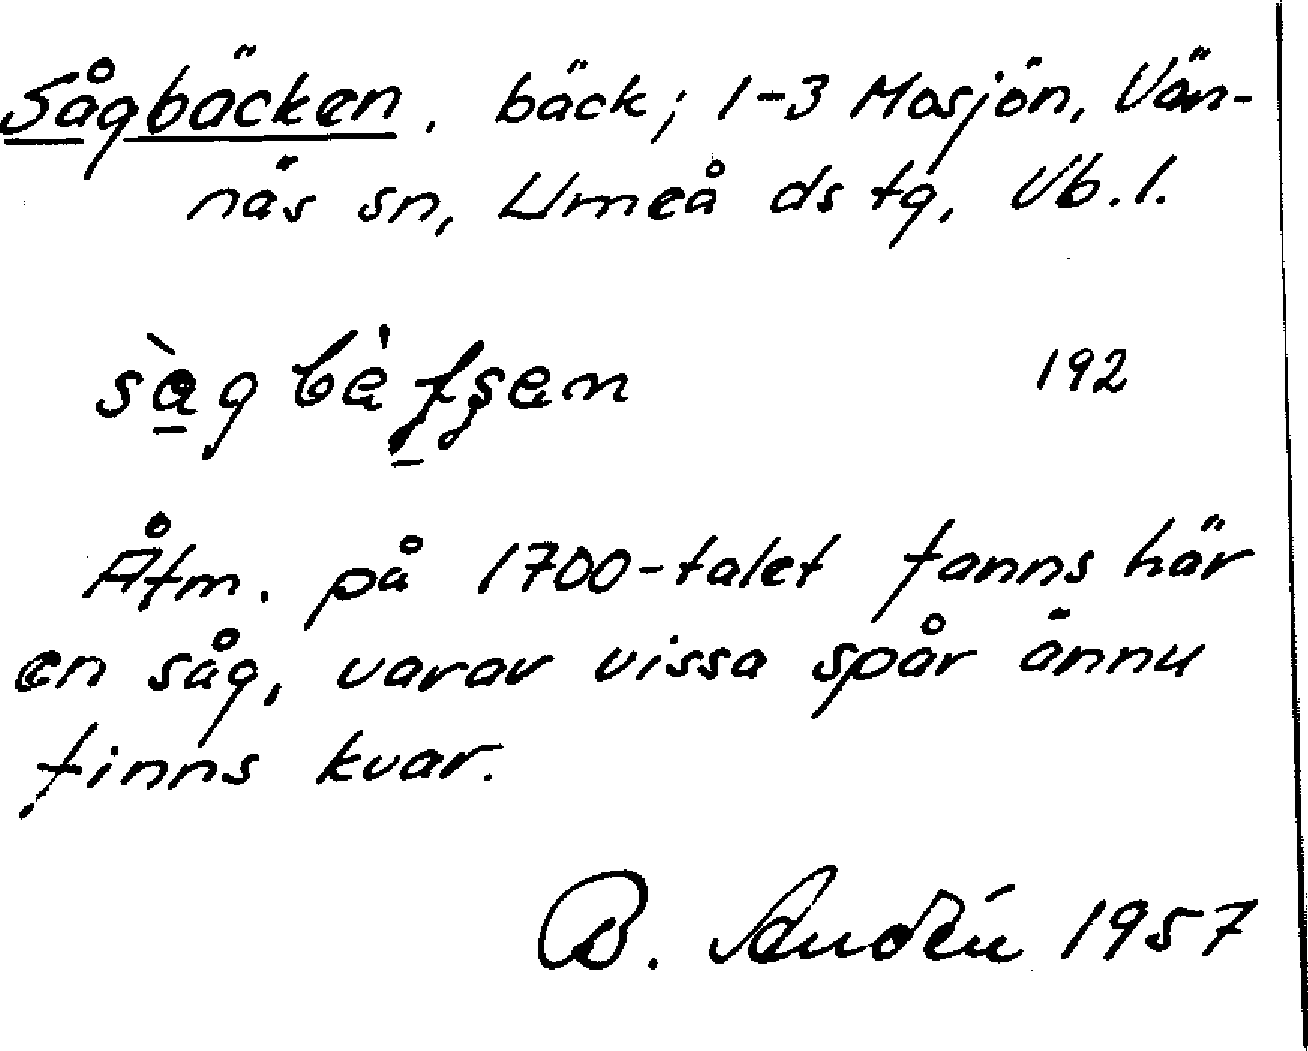 Sågbäcken. bäck; 1-3 Mosjön, Vän-
näs sn, Umeå ds tg, Vb. l.
192
Åtm. på 1700-talet fanns här
en såg, varav vissa spår ännu
finns kvar.
B. Audén 1957